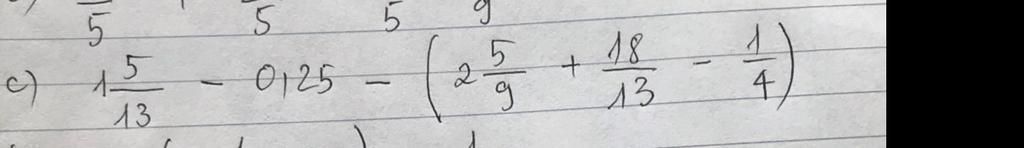 5 5 5 9
c) 1 5/13 - 0,25 - (2 5/9 + 18/13 - 1/4)